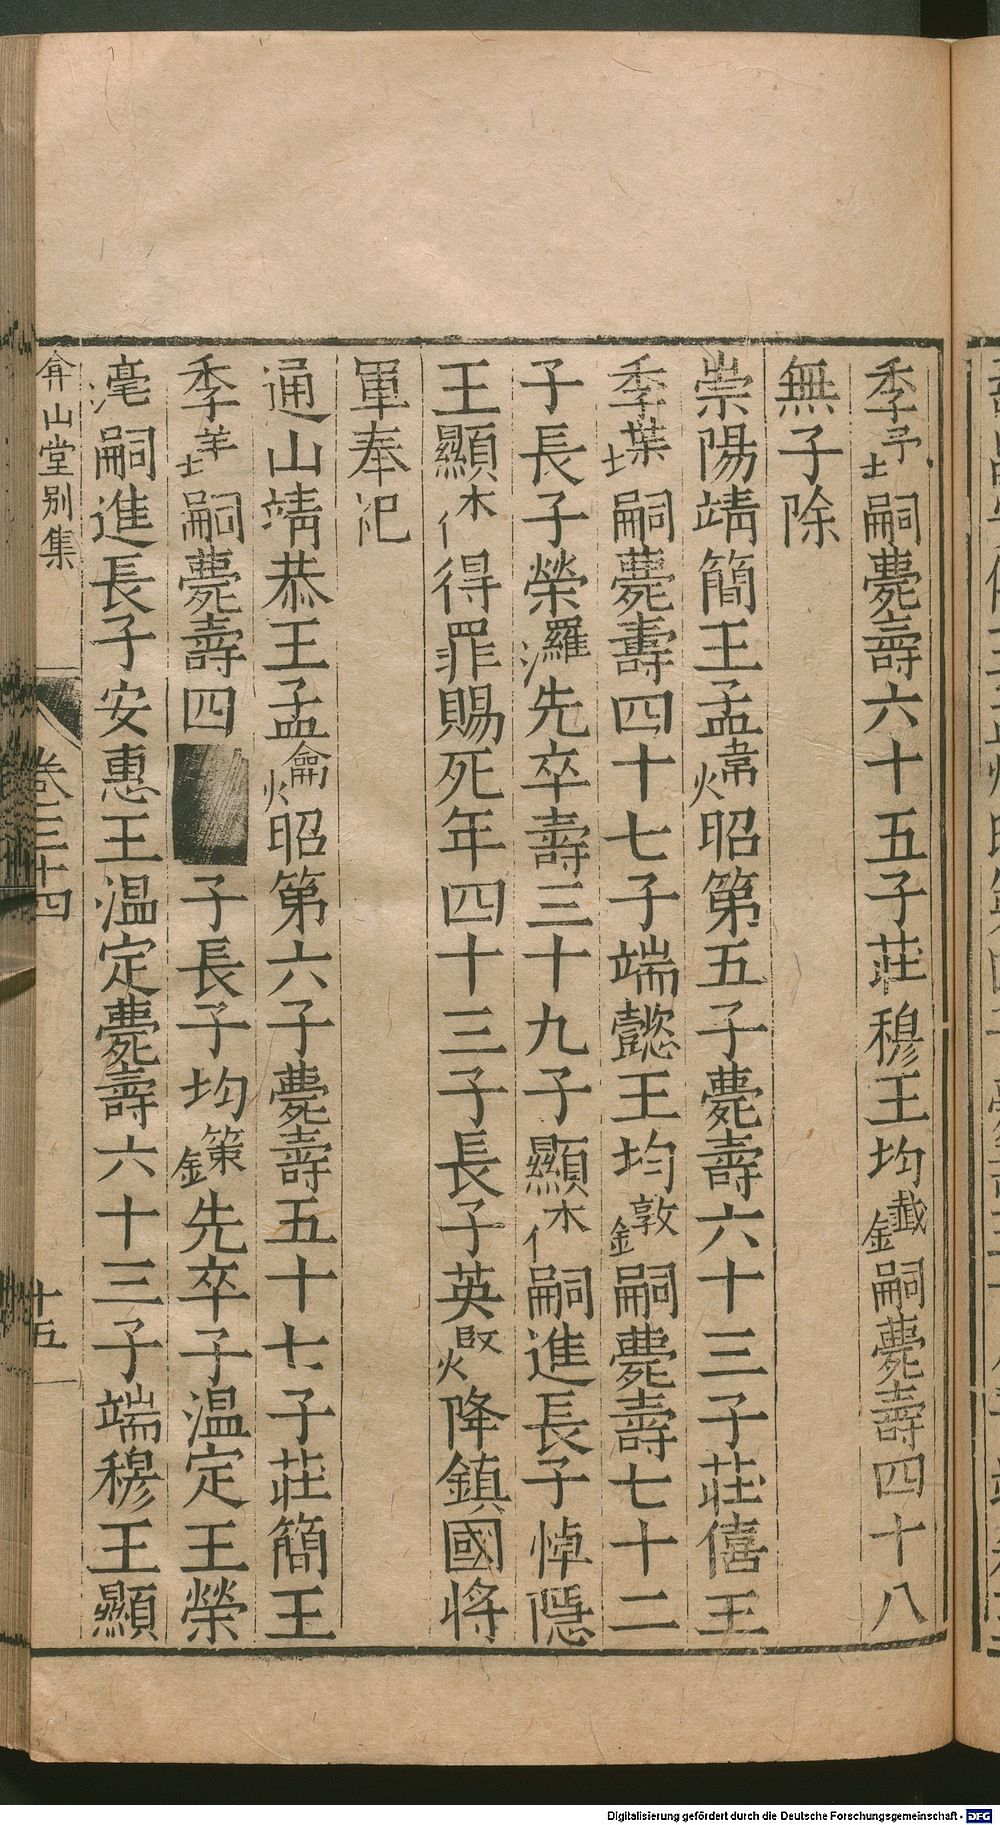 季嗣薨壽六十五子莊穆王均鑯嗣薨壽四十八
無子除
崇陽靖簡王孟煒昭第五子薨壽六十三子莊僖王
季⿰土葉嗣薨壽四十七子端懿王均鐓嗣薨壽七十二
子長子榮⿰氵羅先卒壽三十九子顯休嗣進長子悼隱
王顯休得罪賜死年四十三子長子英降鎮國將
軍奉祀
通山靖恭王孟爚昭第六子薨壽五十七子莊簡王
季垟嗣薨壽四子長子均⿰金策先卒子温定王榮
⿰氵毫嗣進長子安惠王温定薨壽六十三子端穆王顯
弇山堂别集 卷三十四 十五
Digitalisierung gefördert durch die Deutsche Forschungsgemeinschaft - DFG